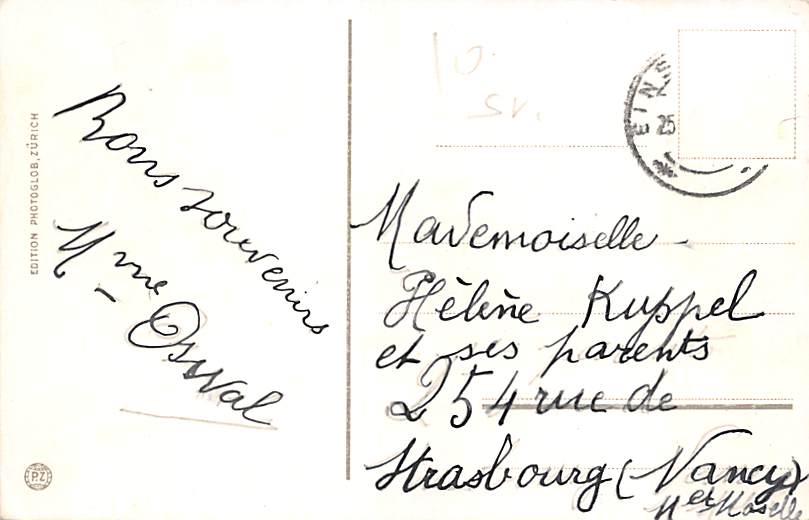 EDITION PHOTOGLOB, ZÜRICH
Bons souvenirs
Mme Oswal
P.Z
EINS
25
Mademoiselle
Hélène Kuppel
et ses parents
254 rue de
Strasbourg (Nancy)
Met Moselle